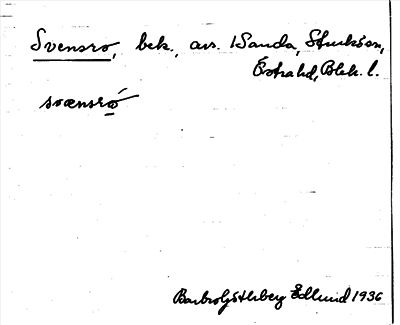 Svensro, bek., avs. 1 Sanda, Sturkö sn,
Östra hd, Blek. l.
svænsró
Barbro Götherberg Edlund 1936